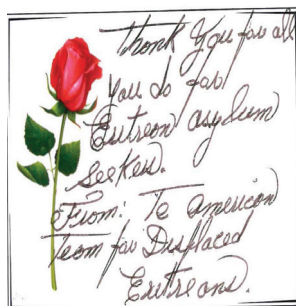 Thank You for all
You do for
Eritrean asylum
Seekers.
From: Te American
Team for Displaced
Eritreans.